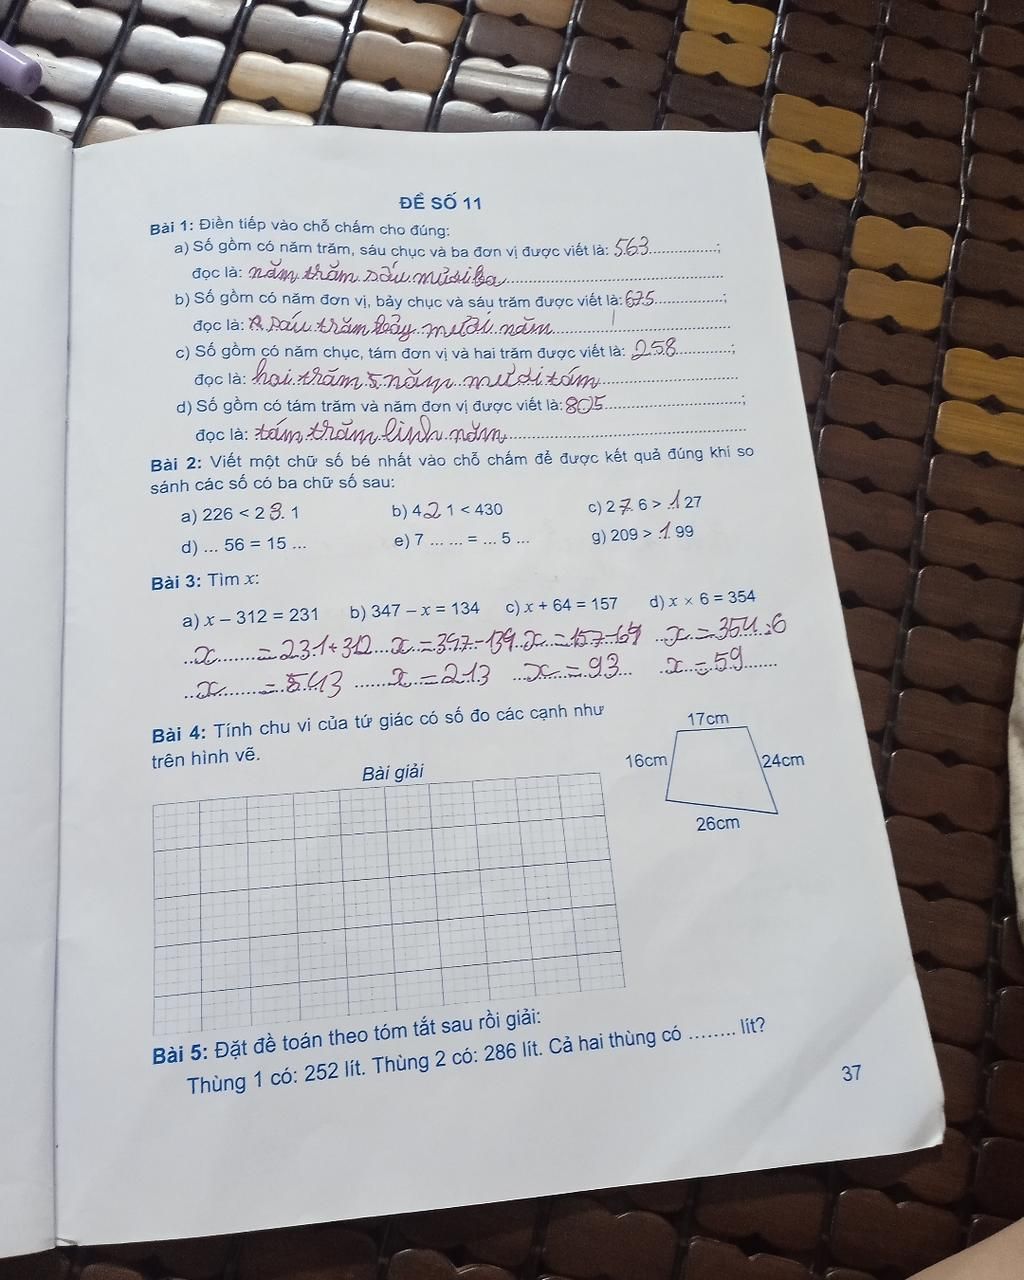 ĐỀ SỐ 11
Bài 1: Điền tiếp vào chỗ chấm cho đúng:
a) Số gồm có năm trăm, sáu chục và ba đơn vị được viết là: 563..............;
đọc là: năm trăm sáu mươi ba..............................
b) Số gồm có năm đơn vị, bảy chục và sáu trăm được viết là: 675..............;
đọc là: sáu trăm bảy mươi năm..............................
c) Số gồm có năm chục, tám đơn vị và hai trăm được viết là: 258...........;
đọc là: hai trăm năm mươi tám......................
d) Số gồm có tám trăm và năm đơn vị được viết là: 805...........................;
đọc là: tám trăm linh năm........................................
Bài 2: Viết một chữ số bé nhất vào chỗ chấm để được kết quả đúng khi so
sánh các số có ba chữ số sau:
a) 226 < 2 3 1 b) 4 2 1 < 430 c) 2 7 6 > 1 27
d) ... 56 = 15 ... e) 7 ... ... = ... 5 ... g) 209 > 1 99
Bài 3: Tìm x:
a) x – 312 = 231 b) 347 – x = 134 c) x + 64 = 157 d) x × 6 = 354
x = 231 + 312 x = 347 - 134 x = 157 - 64 x = 354 : 6
x = 543 x = 213 x = 93 x = 59
Bài 4: Tính chu vi của tứ giác có số đo các cạnh như
trên hình vẽ.
17cm
16cm 24cm
26cm
Bài giải
Bài 5: Đặt đề toán theo tóm tắt sau rồi giải:
Thùng 1 có: 252 lít. Thùng 2 có: 286 lít. Cả hai thùng có ........ lít?
37